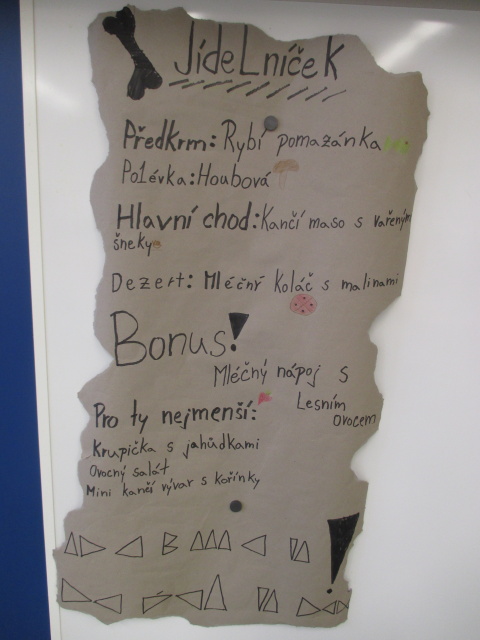 JídeLníček
Předkrm: Rybí pomazánka
Polévka: Houbová
Hlavní chod: Kančí maso s vařeným
šneky
Dezert: Mléčný koláč s malinami
Bonus!
Mléčný nápoj s
Lesním
ovocem
Pro ty nejmenší:
Krupička s jahůdkami
Ovocný salát
Mini kančí vývar s kořínky